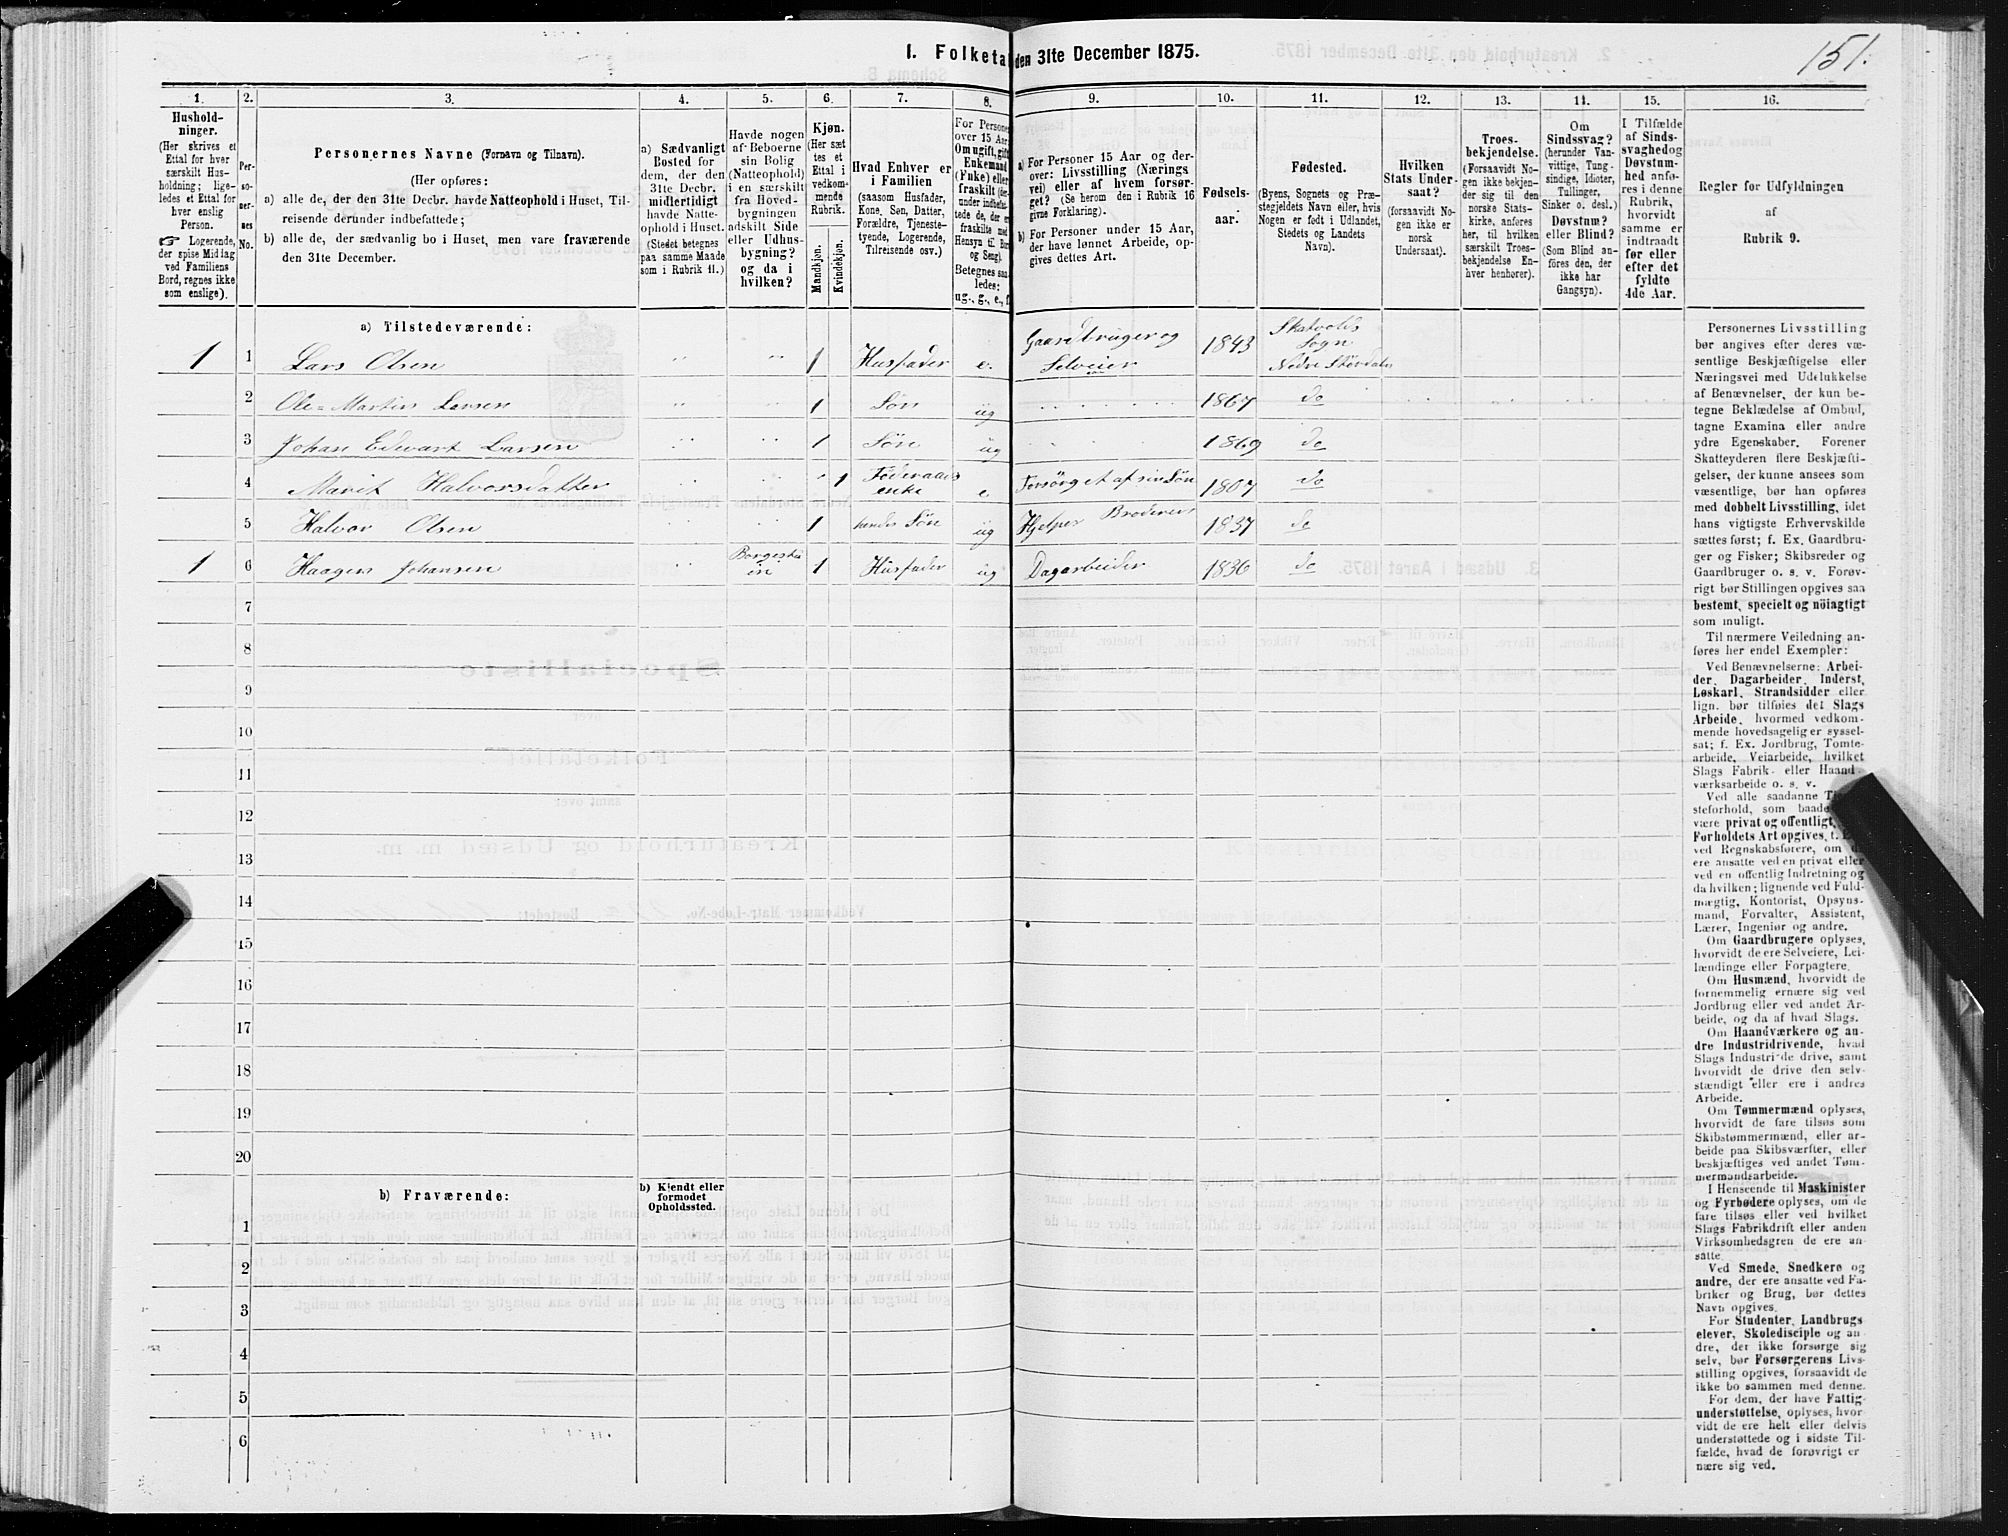 1. Folketal den 31te December 1875.
151.
1.
2.
3.
4.
5.
6.
7.
8.
9.
10.
11.
12.
13.
14.
15.
16.
Hushold-
ninger.
(Her skrives et
Ettal for hver
særskilt Hus-
holdning; lige-
ledes et Ettal for
hver enslig
Person.
☞ Logerende,
der spise Middag
ved Familiens
Bord, regnes ikke
som enslige).
Per-
so-
ner-
nes
No.
Personernes Navne (Fornavn og Tilnavn).
(Her opføres:
a) alle de, der den 31te Decbr. havde Natteophold i Huset, Til-
reisende derunder indbefattede;
b) alle de, der sædvanlig bo i Huset, men vare fraværende
den 31te December.
a) Sædvanligt
Bosted for
dem, der den
31te Decbr.
midlertidigt
havde Natte-
ophold i Huset.
(Stedet betegnes
paa samme Maade
som i Rubrik 11.)
Havde nogen
af Beboerne
sin Bolig
(Natteophold)
i en særskilt
fra Hoved-
bygningen
adskilt Side
eller Udhus-
bygning?
og da i
hvilken?
Kjøn.
(Her sæt
tes et
Ettal i
vedkom-
mende
Rubrik.
Mandkjøn.
Kvindekjøn.
Hvad Enhver er
i Familien
(saasom Husfader,
Kone, Søn, Datter,
Forældre, Tjeneste-
tyende, Logerende,
Tilreisende osv.)
For Personer
over 15 Aar:
Om ugift, gift,
Enkemand
(Enke) eller
fraskilt
Betegnes saa-
ledes:
ug., g., e., f.
a) For Personer 15 Aar og der-
over: Livsstilling (Nærings
vei) eller af hvem forsør-
get? (Se herom den i Rubrik 16
givne Forklaring).
b) For Personer under 15 Aar,
der have lønnet Arbeide, op-
gives dettes Art.
Fødsels-
aar.
Fødested.
(Byens, Sognets og Præ-
stegjeldets Navn eller, hvis
Nogen er født i Udlandet,
Stedets og Landets
Navn).
Hvilken
Stats Under-
saat?
(forsaavidt No-
gen ikke er
norsk
Undersaat).
Troes-
bekjendelse.
(Forsaavidt No-
gen ikke bekjen-
der sig til den
norske Stats-
kirke, anføres
her, til hvilken
særskilt Troes-
bekjendelse En-
hver henhører).
Om
Sindssvag?
(herunder Van-
vittige, Tung-
sindige, Idioter,
Tullinger,
Sinker o. desl.)
Døvstum?
eller Blind?
(Som Blind an-
føres den, der
ikke har
Gangsyn).
I Tilfælde
af Sinds-
svaghed og
Døvstum-
hed anfø-
res i denne
Rubrik,
hvorvidt
samme er
indtraadt
før eller
efter det
fyldte
4de Aar.
Regler for Udfyldningen
af
Rubrik 9.
a) Tilstedeværende:
1 1 Lars Olsen " " 1 Husfader e. Gaardbruger og Selveier 1843 Skatvolds Sogn Nedre Størdalen
2 Ole Martin Larsen " " 1 Søn ug 1867 do
3 Johan Edvart Larsen " " 1 Søn ug 1869 do
4 Marit Halvorsdatter " " 1 Føderaads enke e. Forsørget af sin Søn 1807 do
5 Halvor Olsen " " 1 hendes Søn ug Hjelper Broderen 1837 do
1 6 Haagen Johansen " 1 Husfader ug Dagarbeider 1836 do
7
8
9
10
11
12
13
14
15
16
17
18
19
20
b) Fraværende:
b) Kjendt eller
formodet
Opholdssted.
1
2
3
4
5
6
Personernes Livsstilling
bør angives efter deres væ-
sentlige Beskjæftigelse eller
Næringsvei med Udelukkelse
af Benævnelser, der kun be-
tegne Beklædelse af Ombud,
tagne Examina eller andre
ydre Egenskaber. Forener
Skatteyderen flere Beskjæfti-
gelser, der kunne ansees som
væsentlige, bør han opføres
med dobbelt Livsstilling, idet
hans vigtigste Erhvervskilde
sættes først; f. Ex. Gaardbru-
ger og Fisker; Skibsreder og
Gaardbruger o. s. v. Forøv-
rigt bør Stillingen opgives saa
bestemt, specielt og nöiagtigt
som muligt.
Til nærmere Veiledning an-
føres her endel Exempler:
Ved Benævnelserne: Arbei-
der, Dagarbeider, Inderst,
Løskarl, Strandsidder eller
lign. bør tilføies det Slags
Arbeide, hvormed vedkom-
mende hovedsagelig er syssel-
sat; f. Ex. Jordbrug, Tomte-
arbeide, Veiarbeide, hvilket
Slags Fabrik- eller Haand-
værksarbeide o. s. v.
Ved alle saadanne
steforhold, som baade
være privat og offentligt,
Forholdets Art opgives,
ved Regnskabsførere, om
ere ansatte ved en privat eller
ved en offentlig Indretning og
da hvilken; lignende ved Fuld-
mægtig, Kontorist, Opsyns-
mand, Forvalter, Assistent,
Lærer, Ingeniør og andre.
Om Gaardbrugere oplyses,
hvorvidt de ere Selveiere, Lei-
lændinge eller Forpagtere.
Om Husmænd, hvorvidt de
fornemmelig ernære sig ved
Jordbrug eller ved andet Ar-
beide, og da af hvad Slags.
Om Haandværkere og an-
dre Industridrivende, hvad
Slags Industri de drive, samt
hvorvidt de drive den selv-
stændigt eller ere i andres
Arbeide.
Om Tømmermænd oplyses,
hvorvidt de fare tilsøs som
Skibstømmermænd, eller ar-
beide paa Skibsværfter, eller
beskjæftiges ved andet Tøm-
mermandsarbeide.
I Henseende til Maskinister
og Fyrbødere oplyses, om de
fare tilsøs eller ved hvilket
Slags Fabrikdrift eller anden
Virksomhedsgren de ere an-
satte.
Ved Smede, Snedkere og
andre, der ere ansatte ved Fa-
briker og Brug, bør dettes
Navn opgives.
For Studenter, Landbrugs
elever, Skoledisciple og an
dre, der ikke forsørge sig
selv, bør Forsørgerens Livs-
stilling opgives, forsaavidt de
ikke bo sammen med denne.
For dem, der have Fattig-
understøttelse, oplyses, hvor
vidt de ere helt eller delvis
understøttede og i sidste Til-
fælde, hvad de forøvrigt er
nære sig ved.